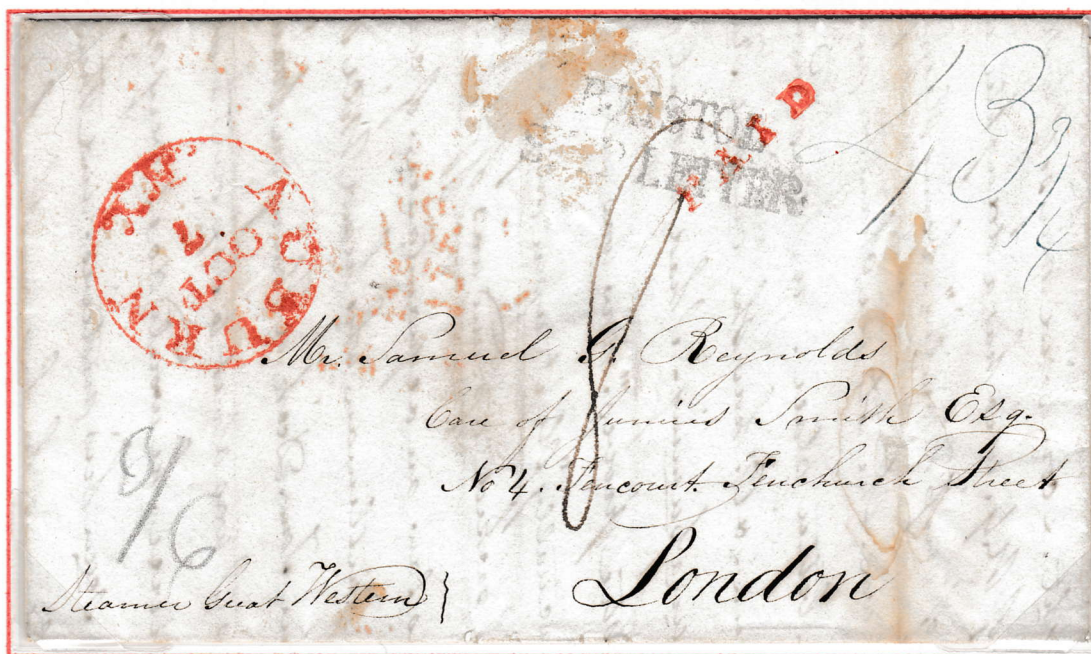 AUBURN NY
OCT
7
BRISTOL
SHIP LETTER
PAID
43 3/4
8
Mr. Samuel G. Reynolds
Care of Junius Smith Esq.
No 4. Fencourt. Fenchurch Street
London
Steamer Great Western